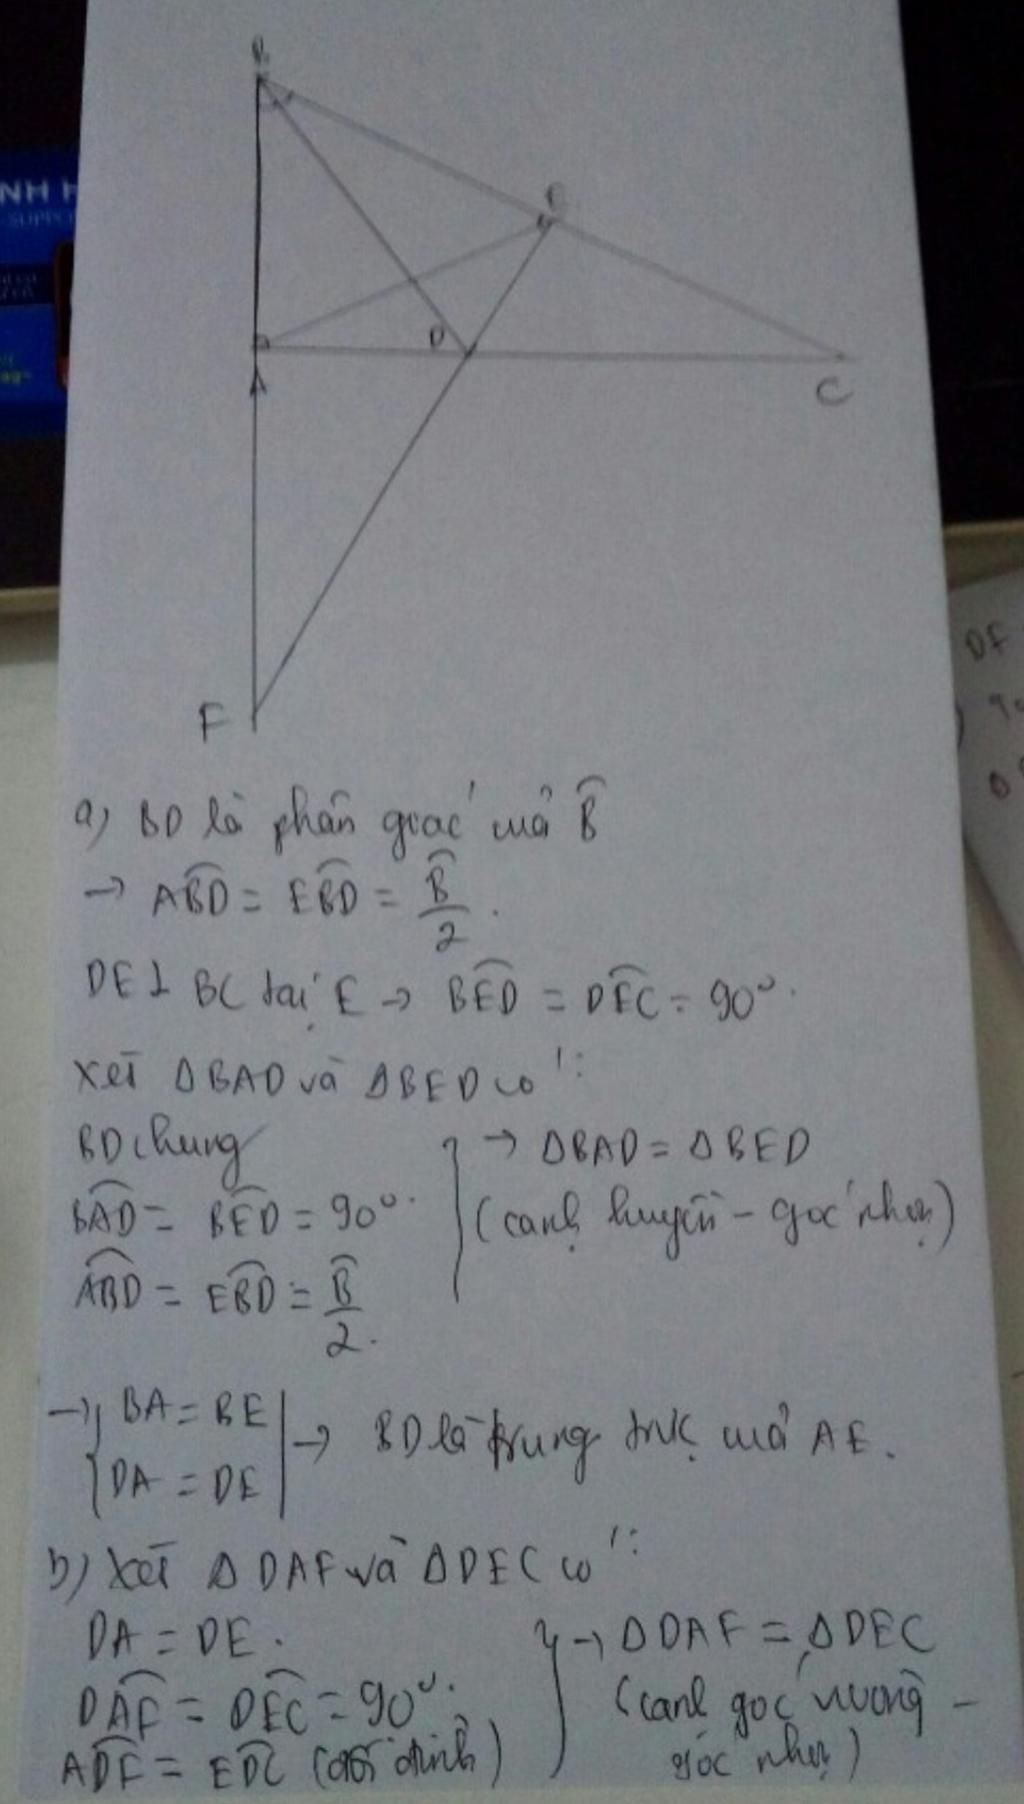 B
E
D
A
C
F
NH H
SUPPO
DF
a) BD là phân giác của B̂
→ AB̂D = EB̂D = B̂/2.
DE ⊥ BC tại E → BÊD = DÊC = 90°.
Xét ΔBAD và ΔBED có:
BD chung
BÂD = BÊD = 90°.
AB̂D = EB̂D = B̂/2.
} → ΔBAD = ΔBED
(cạnh huyền - góc nhọn)
→ { BA = BE
DA = DE | → BD là trung trực của AE.
b) Xét ΔDAF và ΔDEC có:
DA = DE.
DÂF = DÊC = 90°.
AD̂F = ED̂C (đối đỉnh)
} → ΔDAF = ΔDEC
(cạnh góc vuông -
góc nhọn)